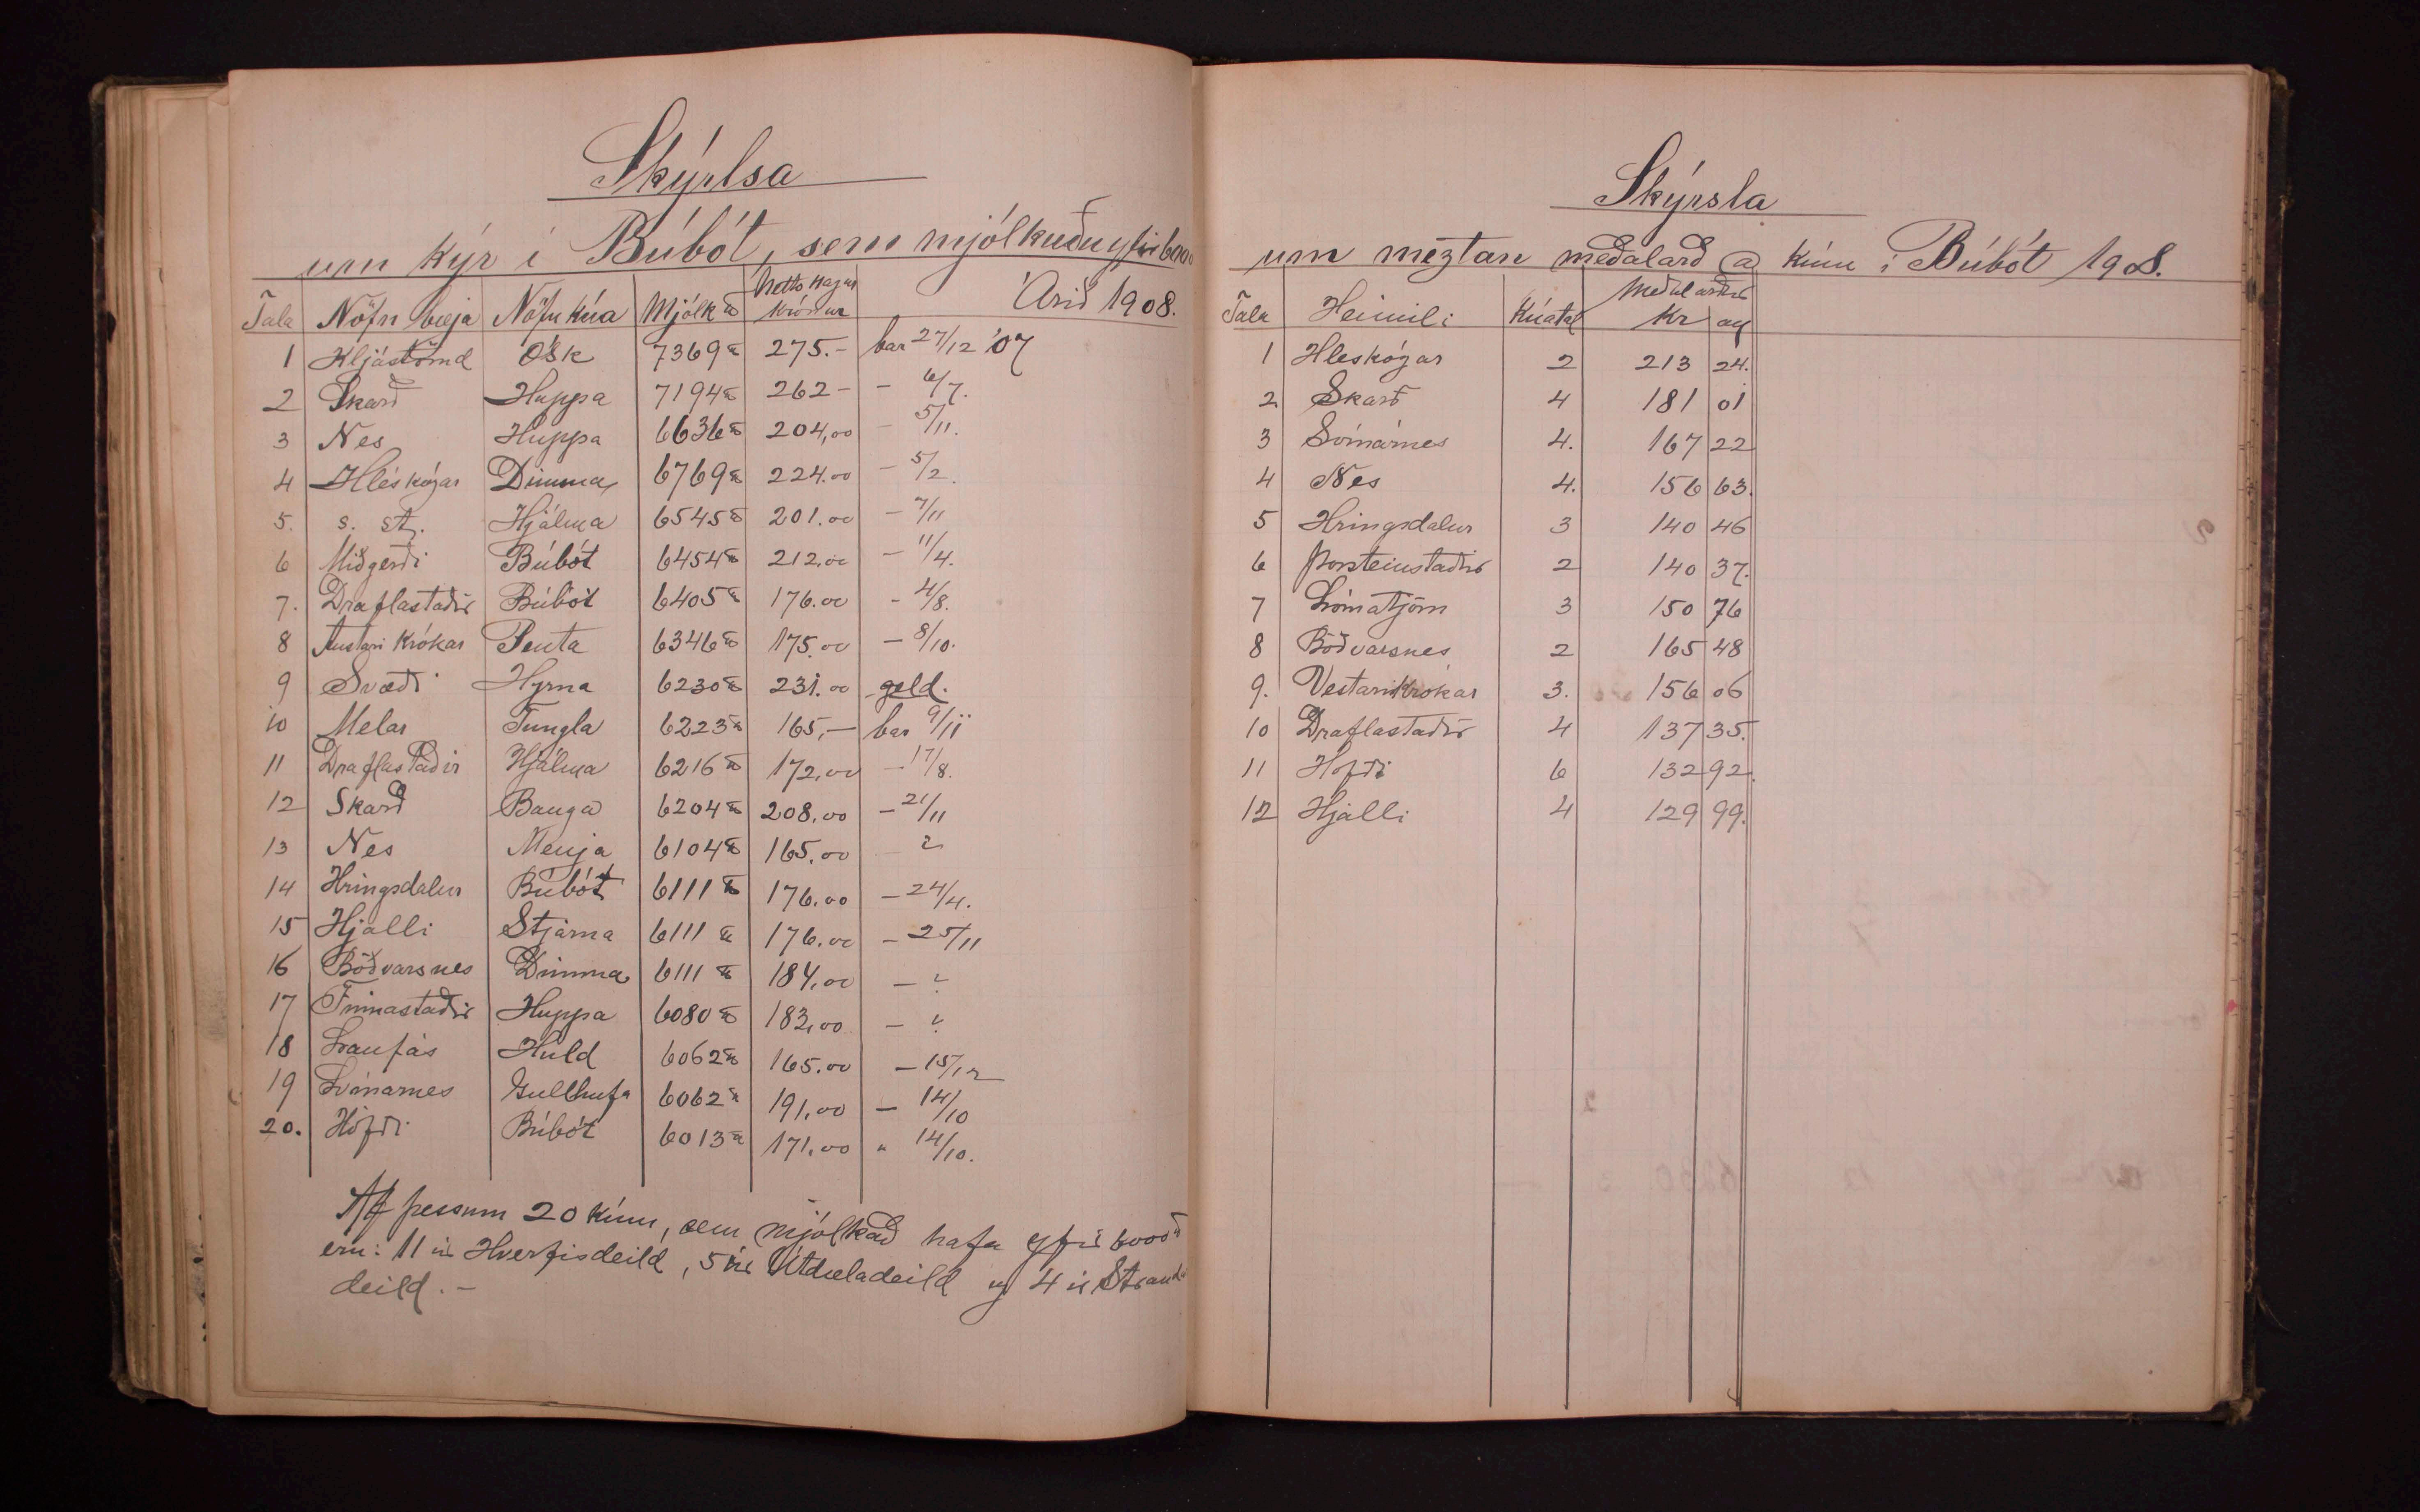 Skýrlsa
um kýr í Búbót, sem mjólkuðu yfir 6000
Árið 1908.
Tala Nöfn bæja Nöfn kúa Mjólk ℔ Netto hagur krónur
1 Kljáströnd Ósk 7369 ℔ 275.- bar 27/12 '07
2 Skarð Huppa 7194 ℔ 262 - - 6/7.
3 Nes Huppa 6636 ℔ 204,00 - 5/11.
4 Hléskógar Dimma 6769 ℔ 224.00 - 5/2.
5. s. st. Hjálma 6545 ℔ 201.00 - 7/11
6 Miðgerði Búbót 6454 ℔ 212.00 - 11/4.
7. Draflastaðir Búbót 6405 ℔ 176.00 - 4/8.
8 Austari Krókar Penta 6346 ℔ 175.00 - 8/10.
9 Svæði Hyrna 6230 ℔ 231.00 geld.
10 Melar Tungla 6223 ℔ 165,- bar 9/11
11 Draflastaðir Hjálma 6216 ℔ 172,00 - 17/8.
12 Skarð Bauga 6204 ℔ 208,00 - 21/11
13 Nes Menja 6104 ℔ 165.00 ?
14 Hringsdalur Búbót 6111 ℔ 176.00 - 24/4.
15 Hjalli Stjarna 6111 ℔ 176.00 - 25/11
16 Böðvarsnes Dimma 6111 ℔ 184,00 - ?
17 Fnjóastaðir Huppa 6080 ℔ 183,00 - ?
18 Laufás Huld 6062 ℔ 165.00 - 15/12
19 Svínárnes Gullhufa 6062 ℔ 191,00 - 14/10
20. Höfði Búbót 6013 ℔ 171,00 " 14/10.
Af þessum 20 kúm, sem mjólkað hafa yfir 6000 ℔
eru: 11 úr Hverfisdeild, 5 úr Útdæladeild og 4 úr Strand
deild. -
Skýrsla
um meztan meðalarð a kúm í Búbót 1908.
Tala Heimili Kúatal Meðal arður Kr au
1 Hleskógar 2 213 24.
2 Skarð 4 181 01
3 Svínárnes 4. 167 22
4 Nes 4. 156 63.
5 Hringsdalur 3 140 46
6 Þorsteinstaðir 2 140 37.
7 Lómatjörn 3 150 76
8 Böðvarsnes 2 165 48
9. Vestari Krókar 3. 156 06
10 Draflastaðir 4 137 35.
11 Höfði 6 132 92.
12 Hjalli 4 129 99.